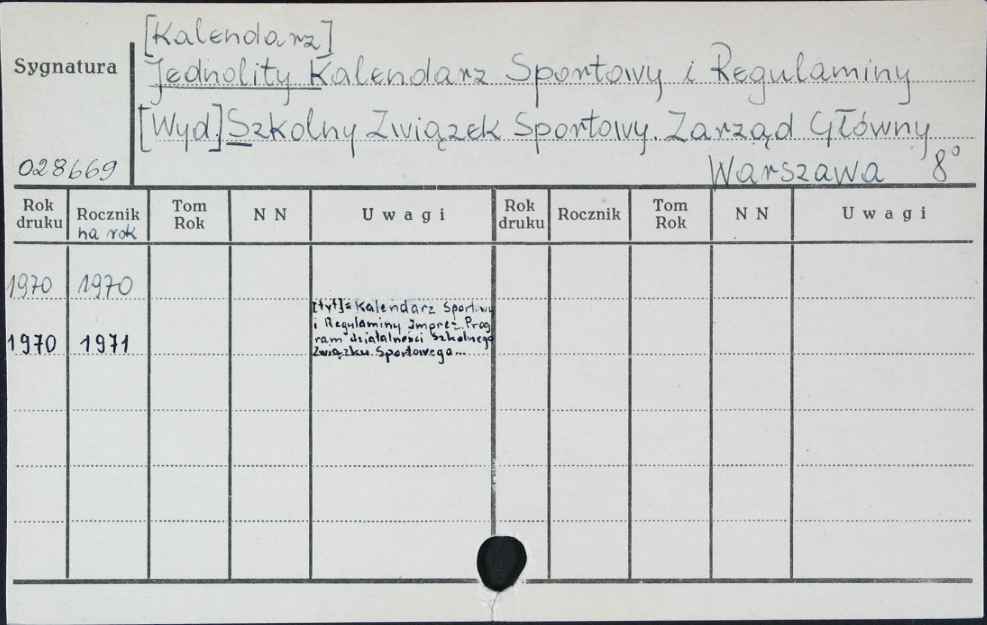 [Kalendarz]
Sygnatura
Jednolity Kalendarz Sportowy i Regulaminy
[Wyd.] Szkolny Związek Sportowy. Zarząd Główny
028669
Warszawa 8°
Rok druku Rocznik na rok Tom Rok N N Uwagi Rok druku Rocznik Tom Rok N N Uwagi
1970 1970
[tyt]= Kalendarz Sportowy
i Regulaminy Imprez. Prog
1970 1971 ram działalności Szkolnego
Związku Sportowego...